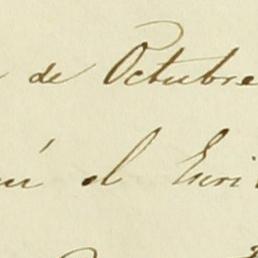 de Octubre
el Escri